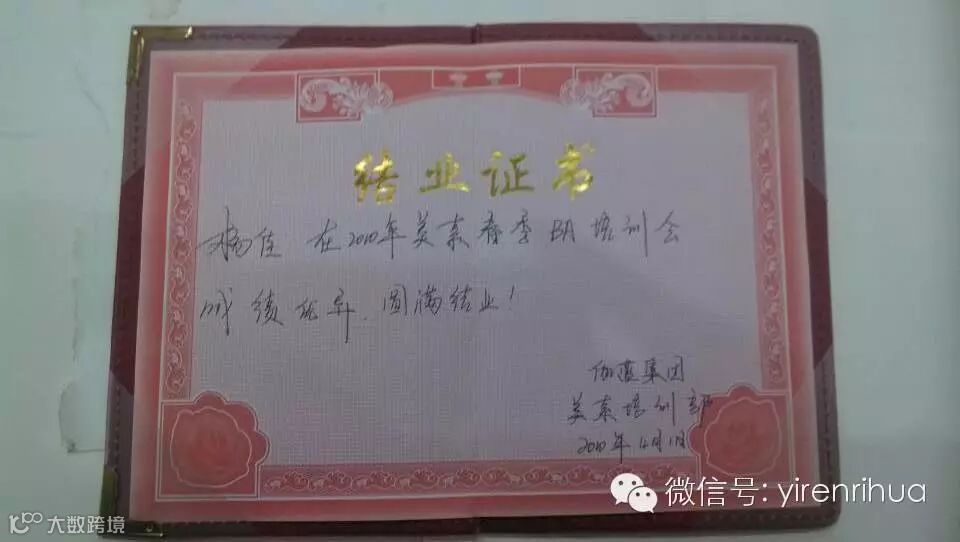 结业证书
杨佳 在2010年美素春季BA培训会
成绩优异、圆满结业！
伽蓝集团
美素培训部
2010年4月1日
微信号: yirenrihua
大数跨境